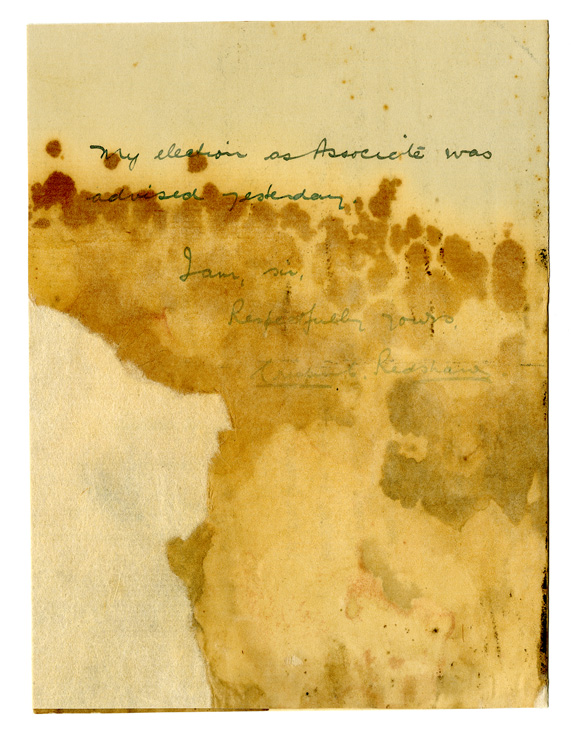 My election as Associate was
advised yesterday.
I am, sir,
Respectfully yours,
Redshaw